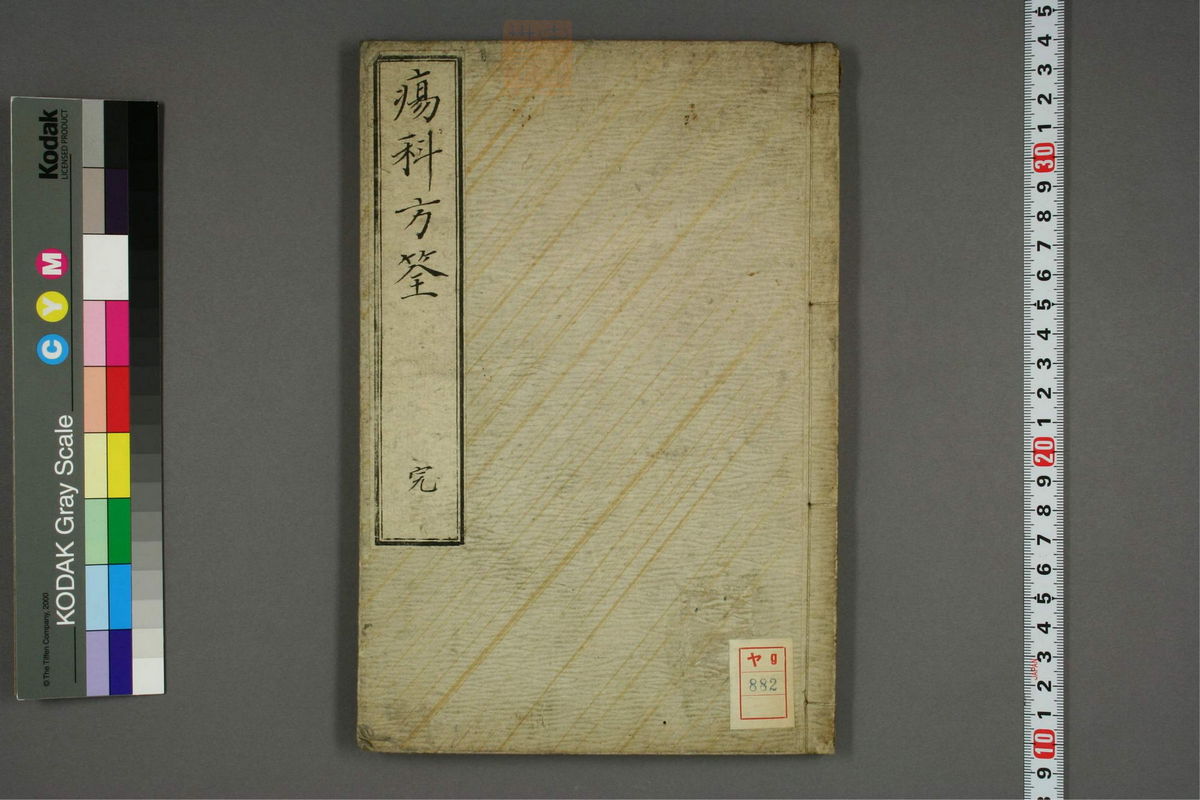 瘍科方筌
完
ヤ9
882
Kodak
LICENSED PRODUCT
C Y M
KODAK Gray Scale
© The Tiffen Company, 2000
5
4
3
2
1
30
9
8
7
6
5
4
3
2
1
20
9
8
7
6
5
4
3
2
1
10
9
JAPAN